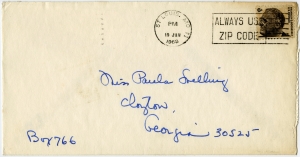 ST. LOUIS, MO.
PM
19 JAN
1969
ALWAYS USE
ZIP CODE
Miss Paula Snelling
Clayton,
Georgia 30525
Box 766